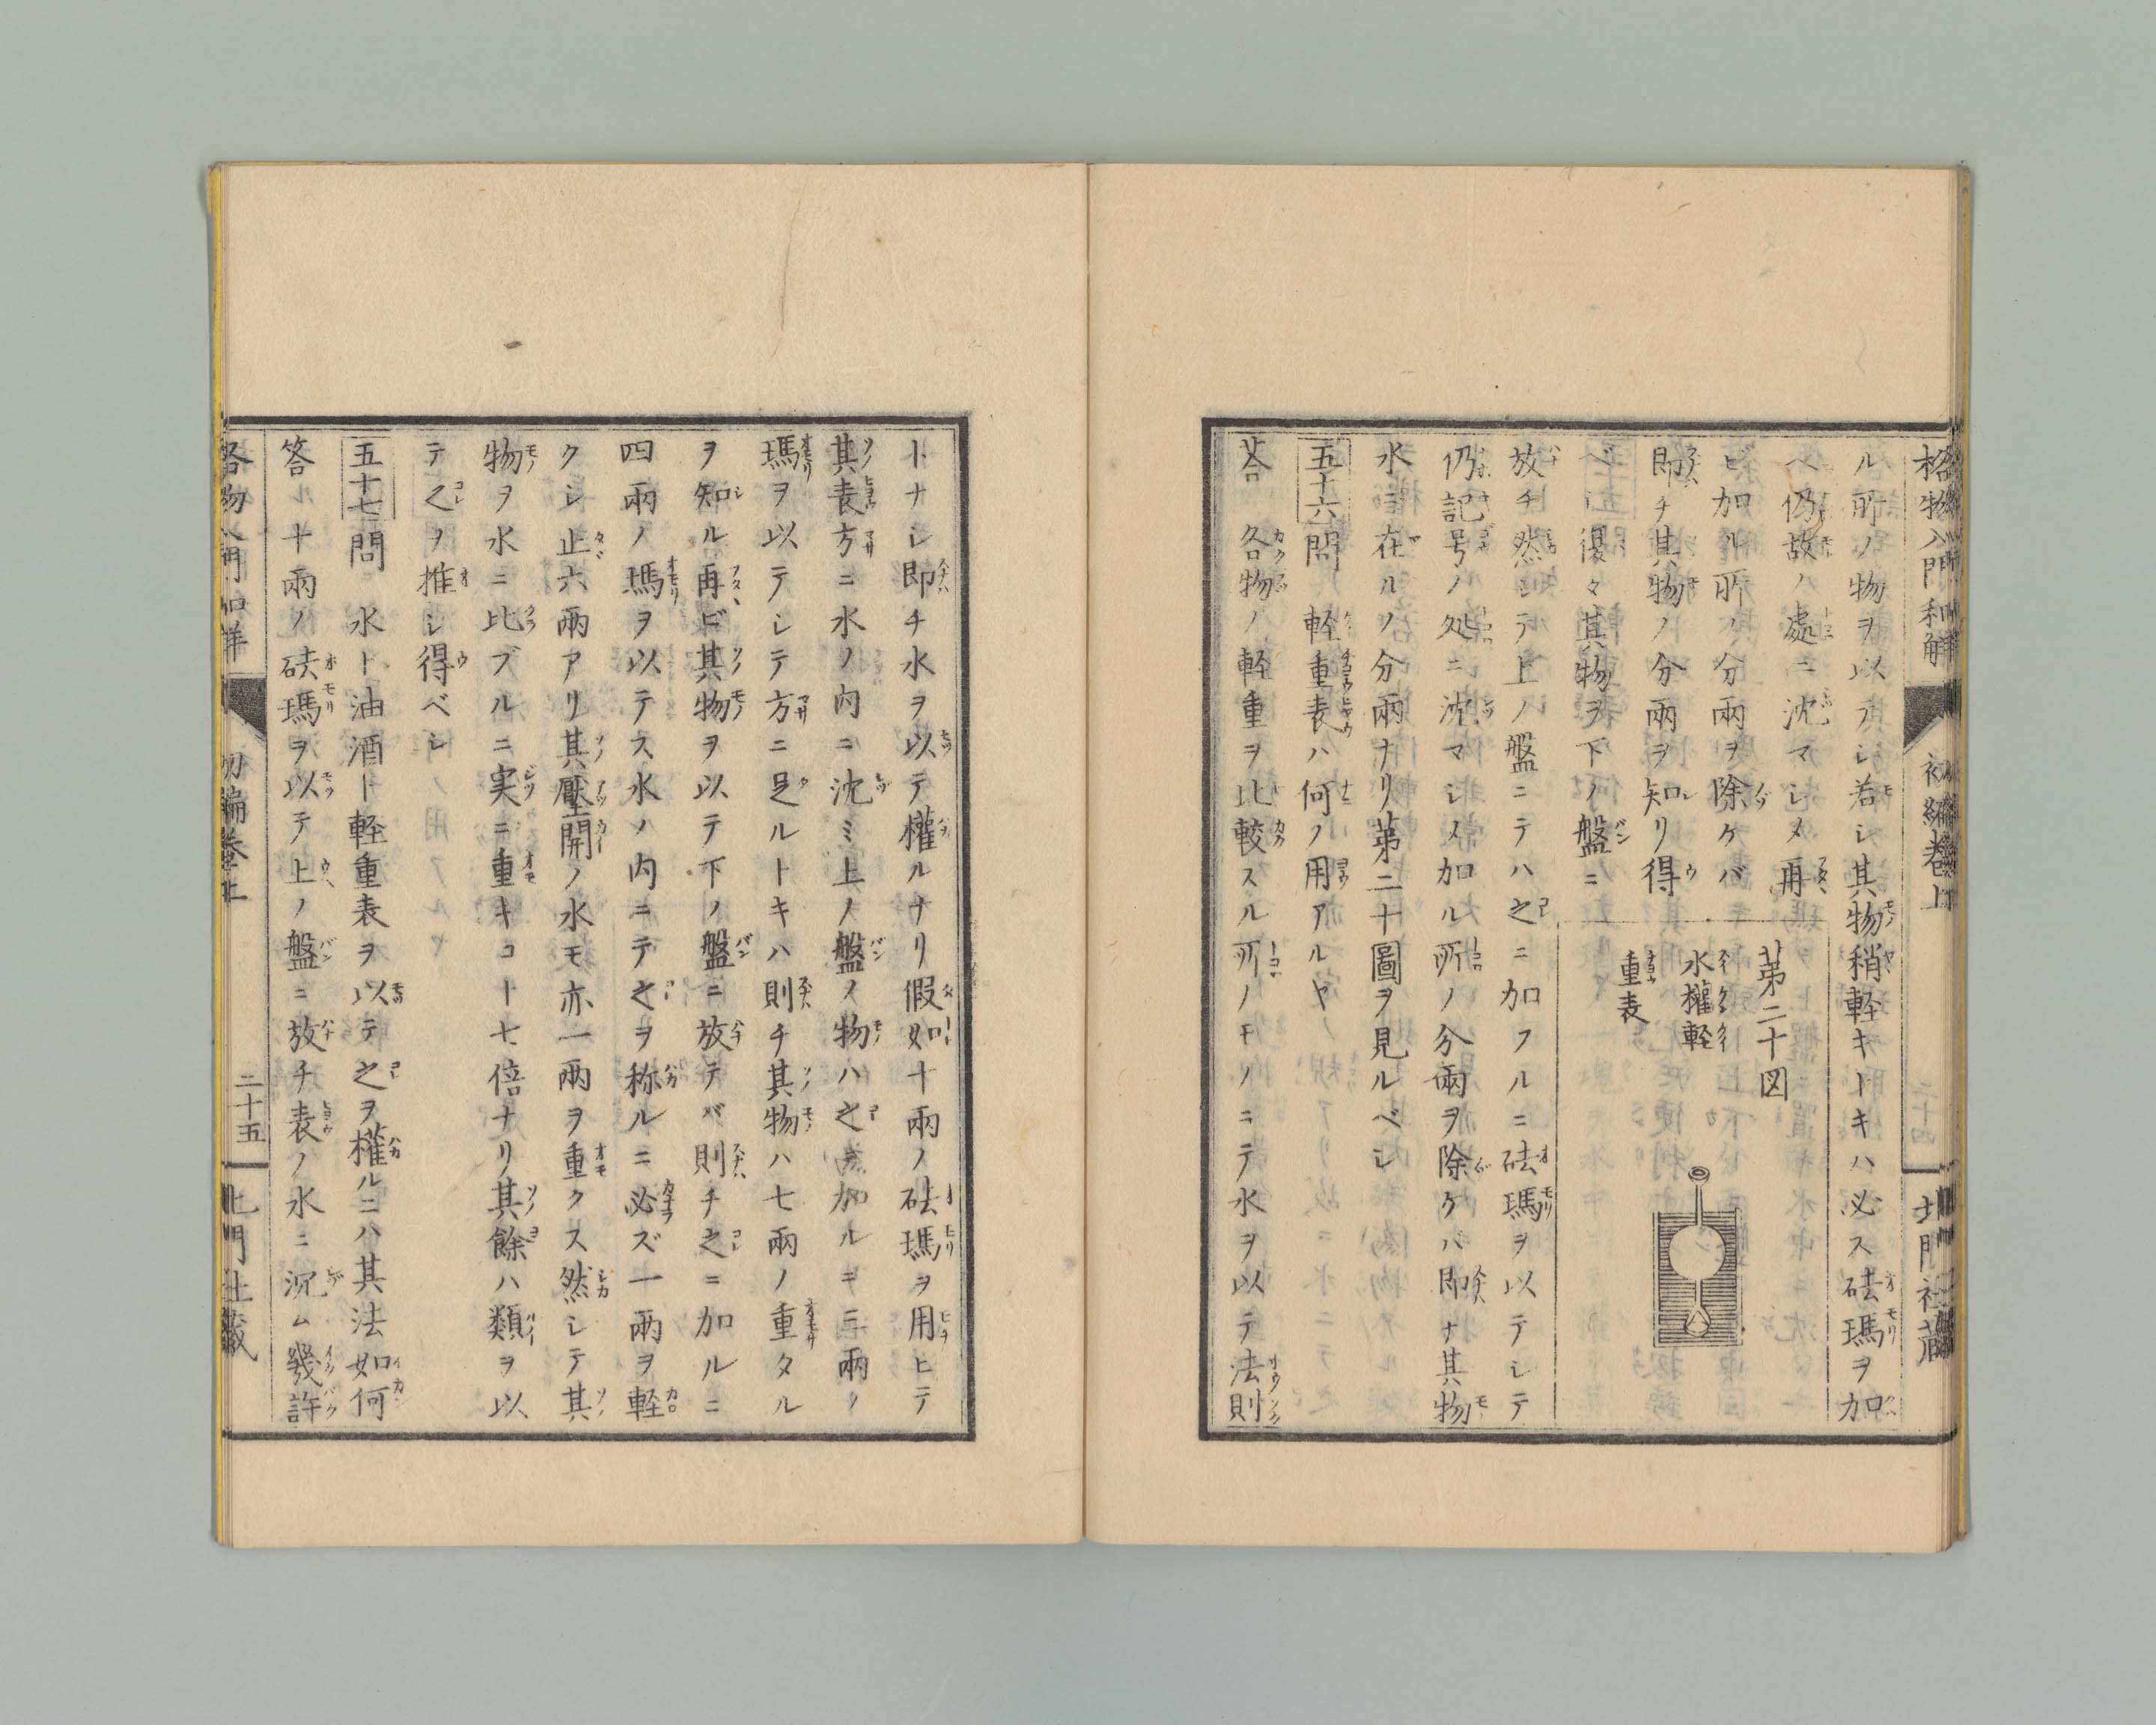 格物入門和解 初編卷上 二十四 北門社藏
ル所ノ物ヲ以テシ若シ其物稍軽キトキハ必ス砝瑪ヲ加
ヘ仍故ハ處ニ沈マシメ再
ビ加ル所ノ分兩ヲ除ケバ
即チ其物ノ分兩ヲ知リ得
ベシ復タ其物ヲ下ノ盤ニ
第二十図
水權軽
重表
放チ然シテ上ノ盤ニテハ之ニ加フルニ砝瑪ヲ以テシテ
仍記号ノ処ニ沈マシメ加ル所ノ分兩ヲ除ケバ即ナ其物
水ニ在ルノ分兩ナリ第二十圖ヲ見ルベシ
五十六問 軽重表ハ何ノ用アルヤ
答 各物ノ軽重ヲ比較スル所ノモノニテ水ヲ以テ法則
トナシ即チ水ヲ以テ權ルナリ假如十兩ノ砝瑪ヲ用ヒテ
其表方ニ水ノ内ニ沈ミ上ノ盤ノ物ハ之ヲ加ルニ三兩ノ
瑪ヲ以テシテ方ニ足ルトキハ則チ其物ハ七兩ノ重タル
ヲ知ル再ビ其物ヲ以テ下ノ盤ニ放テバ則チ之ニ加ルニ
四兩ノ瑪ヲ以テス水ノ内ニテ之ヲ称ルニ必ズ一兩ヲ軽
クシ止六兩アリ其壓開ノ水モ亦一兩ヲ重クス然シテ其
物ヲ水ニ比ブルニ実ニ重キコト七倍ナリ其餘ハ類ヲ以
テ之ヲ推シ得ベシ
五十七問 水ト油酒ト軽重表ヲ以テ之ヲ權ルニハ其法如何
答ル十兩ノ砝瑪ヲ以テ上ノ盤ニ放チ表ノ水ニ沉ム幾許
格物入門和解 初編卷上 二十五 北門社藏